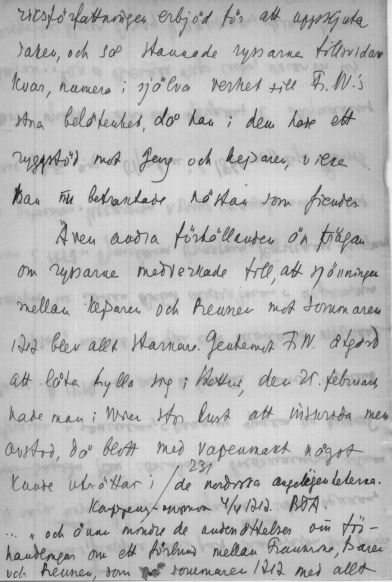 riksförfattningen erbjöd för att uppskjuta
saken, och så stannade ryssarne tillsvidare
kvar, numera i själva verket till Fr. W:s
stora belåtenhet, då han i dem hade ett
ryggstöd mot Georg och kejsaren,
han nu betraktade nästan som fiender.
Även andra förhållanden än frågan
om ryssarne medverkade till, att spänningen
mellan kejsaren och Preussen mot sommaren
1717 blev allt starkare. Gentemot Fr. W. åtgärd
att låta hylla sig i Stettin, den 25. februari,
hade man i Wien stor lust att inskrida men
avstod, då blott med vapenmakt något
kunde uträttas i de nordiska angelägenheterna.
231
4/4 1717.
... "och ännu mindre de andra om för-
handlingar om ett förbund mellan Frankrike, tsaren
och Preussen, som sommaren 1717 med allt